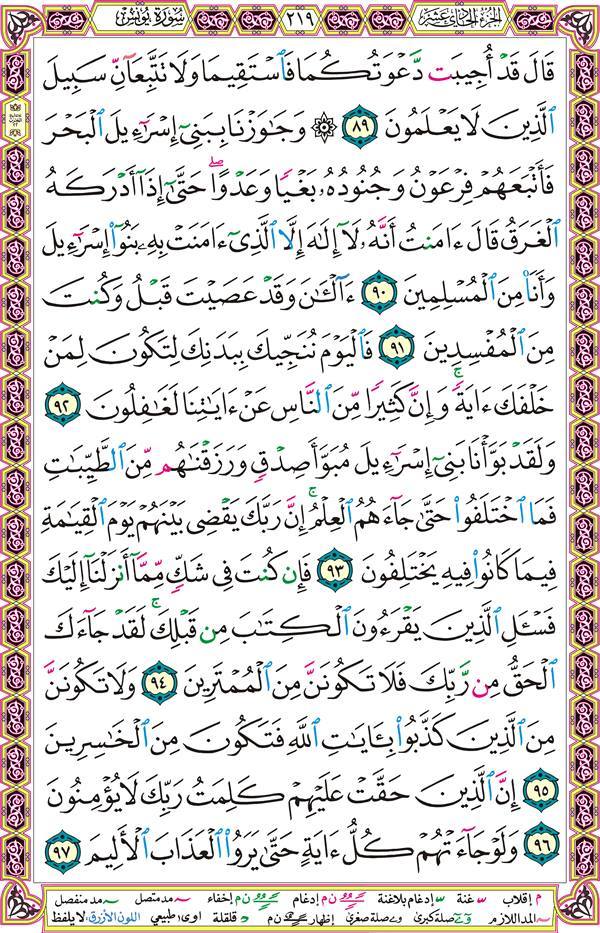 الجزء الحادي عشر
٢١٩
سورة يونس
قَالَ قَدْ أُجِيبَت دَّعْوَتُكُمَا فَٱسْتَقِيمَا وَلَا تَتَّبِعَآنِّ سَبِيلَ
ٱلَّذِينَ لَا يَعْلَمُونَ ٨٩ ۞ وَجَٰوَزْنَا بِبَنِىٓ إِسْرَٰٓءِيلَ ٱلْبَحْرَ
فَأَتْبَعَهُمْ فِرْعَوْنُ وَجُنُودُهُۥ بَغْيًا وَعَدْوًا ۖ حَتَّىٰٓ إِذَآ أَدْرَكَهُ
ٱلْغَرَقُ قَالَ ءَامَنتُ أَنَّهُۥ لَآ إِلَٰهَ إِلَّا ٱلَّذِىٓ ءَامَنَتْ بِهِۦ بَنُوٓا۟ إِسْرَٰٓءِيلَ
وَأَنَا۠ مِنَ ٱلْمُسْلِمِينَ ٩٠ ءَآلْـَٰٔنَ وَقَدْ عَصَيْتَ قَبْلُ وَكُنتَ
مِنَ ٱلْمُفْسِدِينَ ٩١ فَٱلْيَوْمَ نُنَجِّيكَ بِبَدَنِكَ لِتَكُونَ لِمَنْ
خَلْفَكَ ءَايَةً ۚ وَإِنَّ كَثِيرًا مِّنَ ٱلنَّاسِ عَنْ ءَايَٰتِنَا لَغَٰفِلُونَ ٩٢
وَلَقَدْ بَوَّأْنَا بَنِىٓ إِسْرَٰٓءِيلَ مُبَوَّأَ صِدْقٍ وَرَزَقْنَٰهُم مِّنَ ٱلطَّيِّبَٰتِ
فَمَا ٱخْتَلَفُوا۟ حَتَّىٰ جَآءَهُمُ ٱلْعِلْمُ ۚ إِنَّ رَبَّكَ يَقْضِى بَيْنَهُمْ يَوْمَ ٱلْقِيَٰمَةِ
فِيمَا كَانُوا۟ فِيهِ يَخْتَلِفُونَ ٩٣ فَإِن كُنتَ فِى شَكٍّ مِّمَّآ أَنزَلْنَآ إِلَيْكَ
فَسْـَٔلِ ٱلَّذِينَ يَقْرَءُونَ ٱلْكِتَٰبَ مِن قَبْلِكَ ۚ لَقَدْ جَآءَكَ
ٱلْحَقُّ مِن رَّبِّكَ فَلَا تَكُونَنَّ مِنَ ٱلْمُمْتَرِينَ ٩٤ وَلَا تَكُونَنَّ
مِنَ ٱلَّذِينَ كَذَّبُوا۟ بِـَٔايَٰتِ ٱللَّهِ فَتَكُونَ مِنَ ٱلْخَٰسِرِينَ
٩٥ إِنَّ ٱلَّذِينَ حَقَّتْ عَلَيْهِمْ كَلِمَتُ رَبِّكَ لَا يُؤْمِنُونَ
٩٦ وَلَوْ جَآءَتْهُمْ كُلُّ ءَايَةٍ حَتَّىٰ يَرَوُا۟ ٱلْعَذَابَ ٱلْأَلِيمَ ٩٧
م إقلاب غنة إدغام بلاغنة ن م إدغام ن م إخفاء مد متصل مد منفصل
المد اللازم صلة كبرى صلة صغرى إظهار ن م قلقلة اوى طبيعي اللون الأزرق لا يلفظ